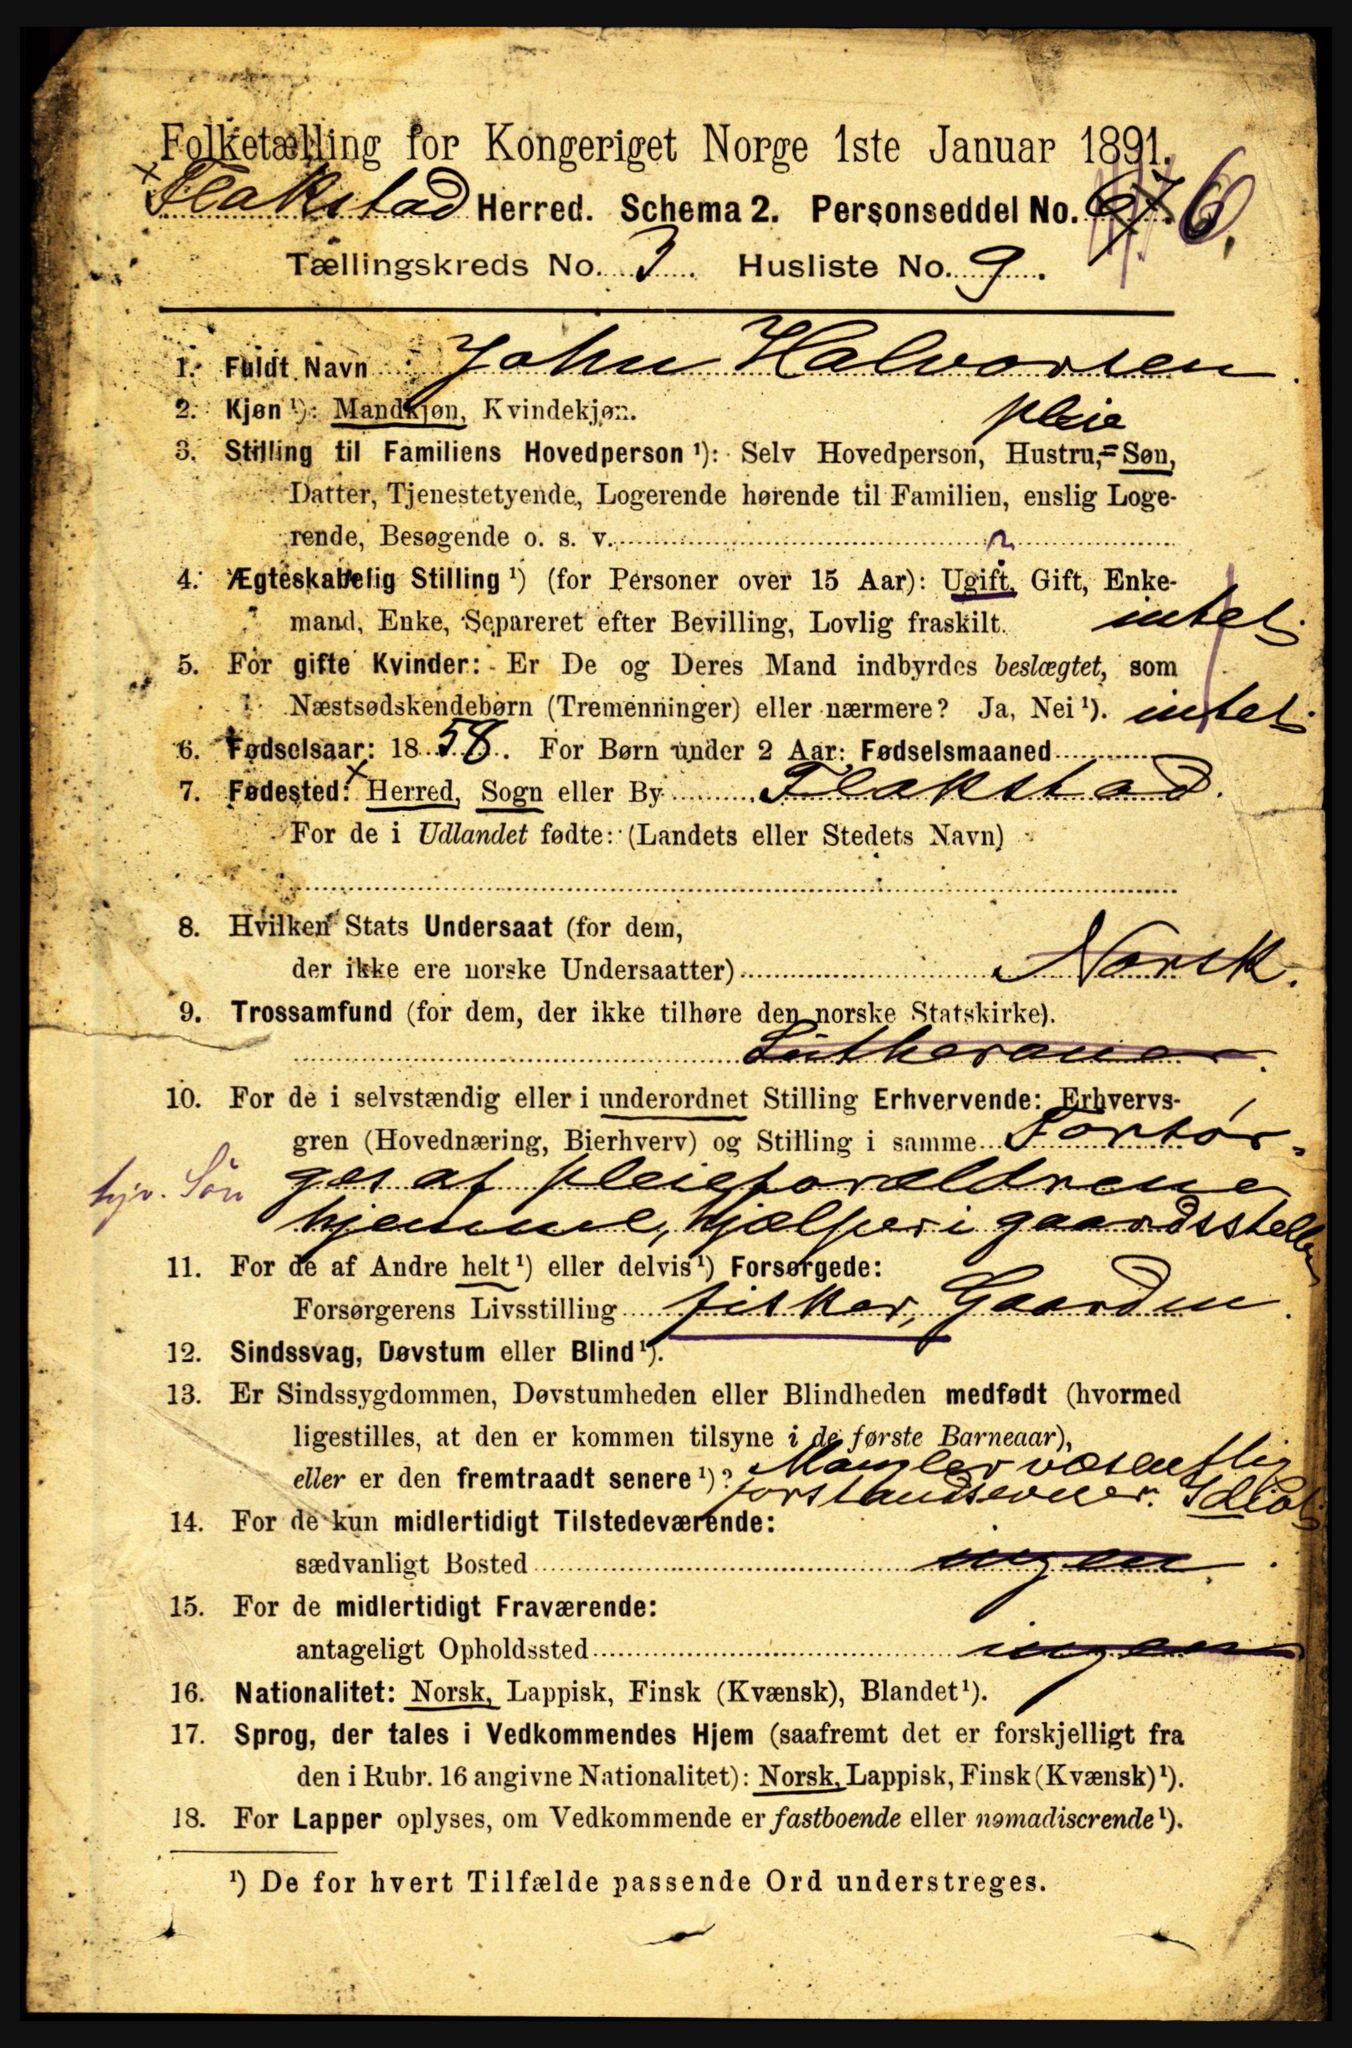 Folketælling for Kongeriget Norge 1ste Januar 1891.
Flakstad Herred. Schema 2. Personseddel No. 6.
Tællingskreds No. 3. Husliste No. 9.
1. Fuldt Navn John Halvorsen.
2. Kjøn ¹): Mandkjøn, Kvindekjøn. pleie
3. Stilling til Familiens Hovedperson ¹): Selv Hovedperson, Hustru, = Søn,
Datter, Tjenestetyende, Logerende hørende til Familien, enslig Loge-
rende, Besøgende o. s. v.
4. Ægteskabelig Stilling ¹) (for Personer over 15 Aar): Ugift, Gift, Enke-
mand, Enke, Separeret efter Bevilling, Lovlig fraskilt. intet.
5. For gifte Kvinder: Er De og Deres Mand indbyrdes beslægtet, som
Næstsødskendebørn (Tremenninger) eller nærmere? Ja, Nei ¹). intet.
6. Fødselsaar: 1858. For Børn under 2 Aar: Fødselsmaaned
7. Fødested: Herred, Sogn eller By Flakstad.
For de i Udlandet fødte: (Landets eller Stedets Navn)
8. Hvilken Stats Undersaat (for dem,
der ikke ere norske Undersaatter) Norsk.
9. Trossamfund (for dem, der ikke tilhøre den norske Statskirke).
Lutheraner.
10. For de i selvstændig eller i underordnet Stilling Erhvervende: Erhvervs-
gren (Hovednæring, Bierhverv) og Stilling i samme Forsør=
hjv. Søn ges af pleieforældrene
hjemme, hjælper i gaardsstellet
11. For de af Andre helt ¹) eller delvis ¹) Forsørgede:
Forsørgerens Livsstilling fisker, Gaardm.
12. Sindssvag, Døvstum eller Blind ¹).
13. Er Sindssygdommen, Døvstumheden eller Blindheden medfødt (hvormed
ligestilles, at den er kommen tilsyne i de første Barneaar),
eller er den fremtraadt senere ¹)? Mangler væsentlig
forstandsevner. Idiot.
14. For de kun midlertidigt Tilstedeværende:
sædvanligt Bosted ingen.
15. For de midlertidigt Fraværende:
antageligt Opholdssted ingen
16. Nationalitet: Norsk, Lappisk, Finsk (Kvænsk), Blandet ¹).
17. Sprog, der tales i Vedkommendes Hjem (saafremt det er forskjelligt fra
den i Rubr. 16 angivne Nationalitet): Norsk, Lappisk, Finsk (Kvænsk) ¹).
18. For Lapper oplyses, om Vedkommende er fastboende eller nomadiserende ¹).
¹) De for hvert Tilfælde passende Ord understreges.